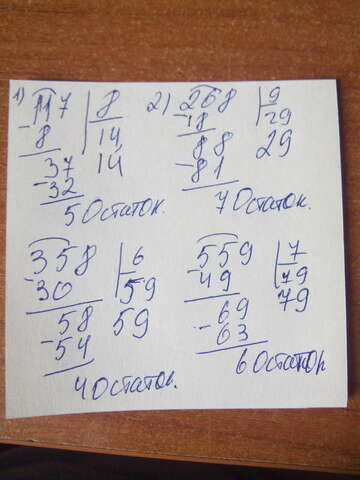 1) 117 | 8
- 8 | 14
37 14
- 32
5 Остаток.
2) 268 | 9
- 18 | 29
88 29
- 81
7 Остаток.
358 | 6
- 30 | 59
58 59
- 54
4 Остаток.
559 | 7
- 49 | 79
69 79
- 63
6 Остаток